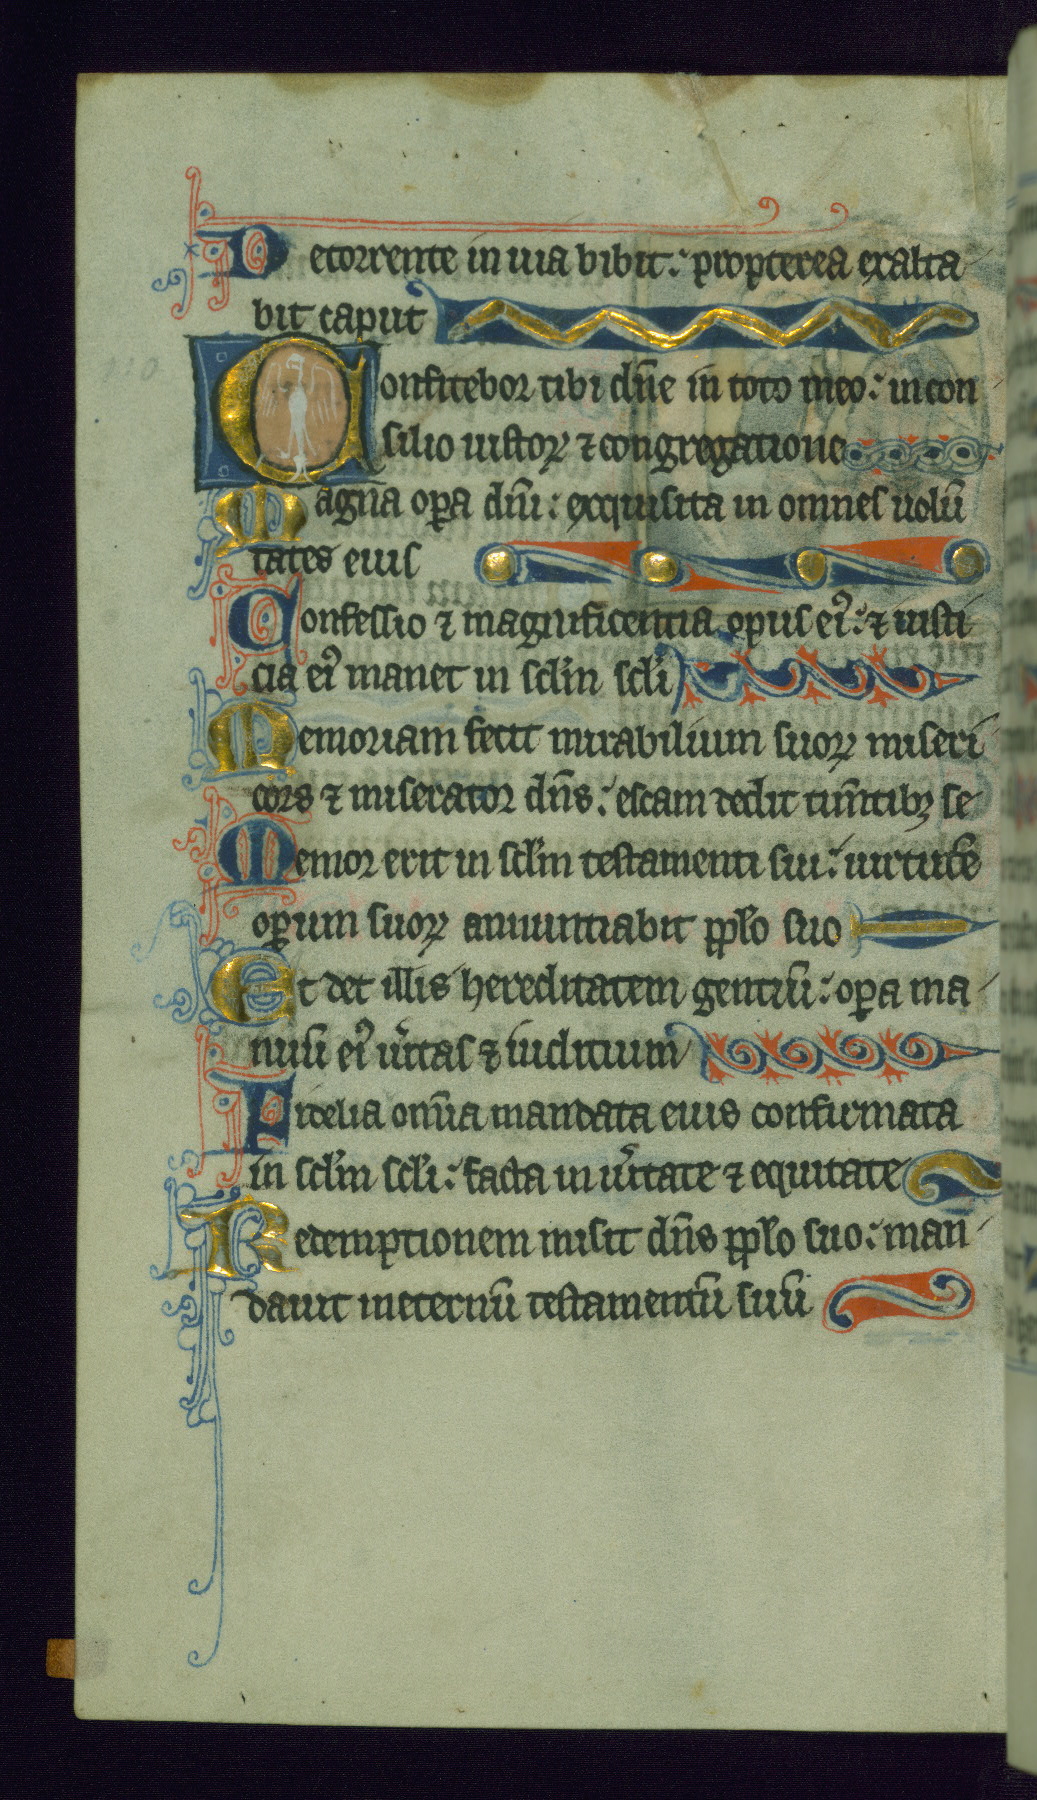 De torrente in uia bibit: propterea exalta
bit caput
Confitebor tibi dn̄e in toto meo: in con
silio iustoꝝ ⁊ congregatione
Magna oꝑa dn̄i: exquisita in omnes uolū
tates eius
Confessio ⁊ magnificentia opus eiꝰ: ⁊ iusti
cia eiꝰ manet in sclm̄ sclī
Memoriam fecit mirabilium suoꝝ miseri
cors ⁊ miserator dn̄s: escam dedit tim̄tibꝫ se
Memor erit in sclm̄ testamenti sui: uirtutē
oꝑum suoꝝ annuntiabit ppl̄o suo
Et det illis hereditatem gentiū: oꝑa ma
nuū eiꝰ u̾itas ⁊ iudicium
Fidelia om̄ia mandata eius confirmata
in sclm̄ sclī: facta in u̾itate ⁊ equitate
Redemptionem misit dn̄s ppl̄o suo: man
dauit ineternū testamentū suū
110